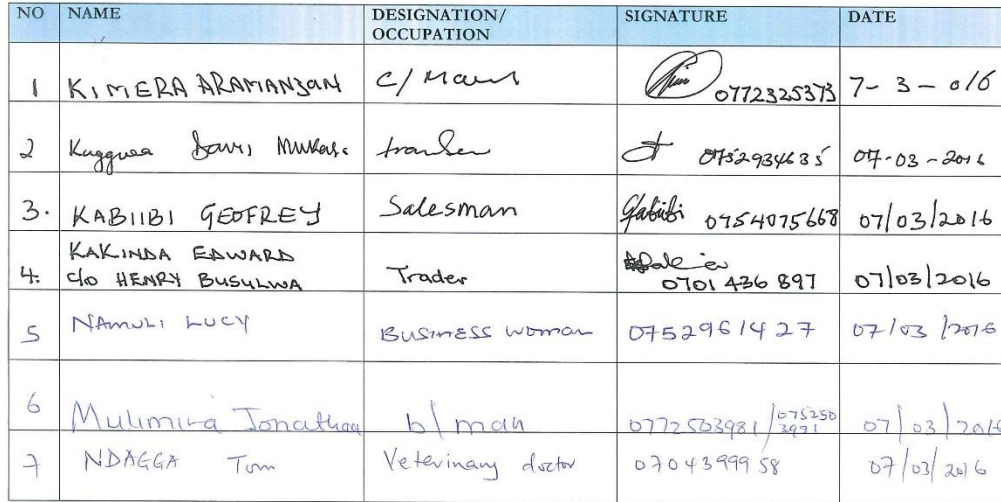 NO NAME DESIGNATION/ SIGNATURE DATE
OCCUPATION
1 KIMERA ARAMANZAN C/ 0772325373 7- 3 - 016
2 Kaggwa 0752934635 07-03-2016
3. KABIIBI GEOFREY Salesman Gkabiibi 0754075668 07/03/2016
KAKINDA EDWARD
4. c/o HENRY BUSULWA Trader 0701 436 897 07/03/2016
5 NAMULI LUCY BUSINESS woman 0752961427 07/03/2016
6 Mulimira Jonathan b/man 0772503981/075250 07/03/2016
3971
7 NDAGGA Tom Veterinary doctor 0704399958 07/03/2016